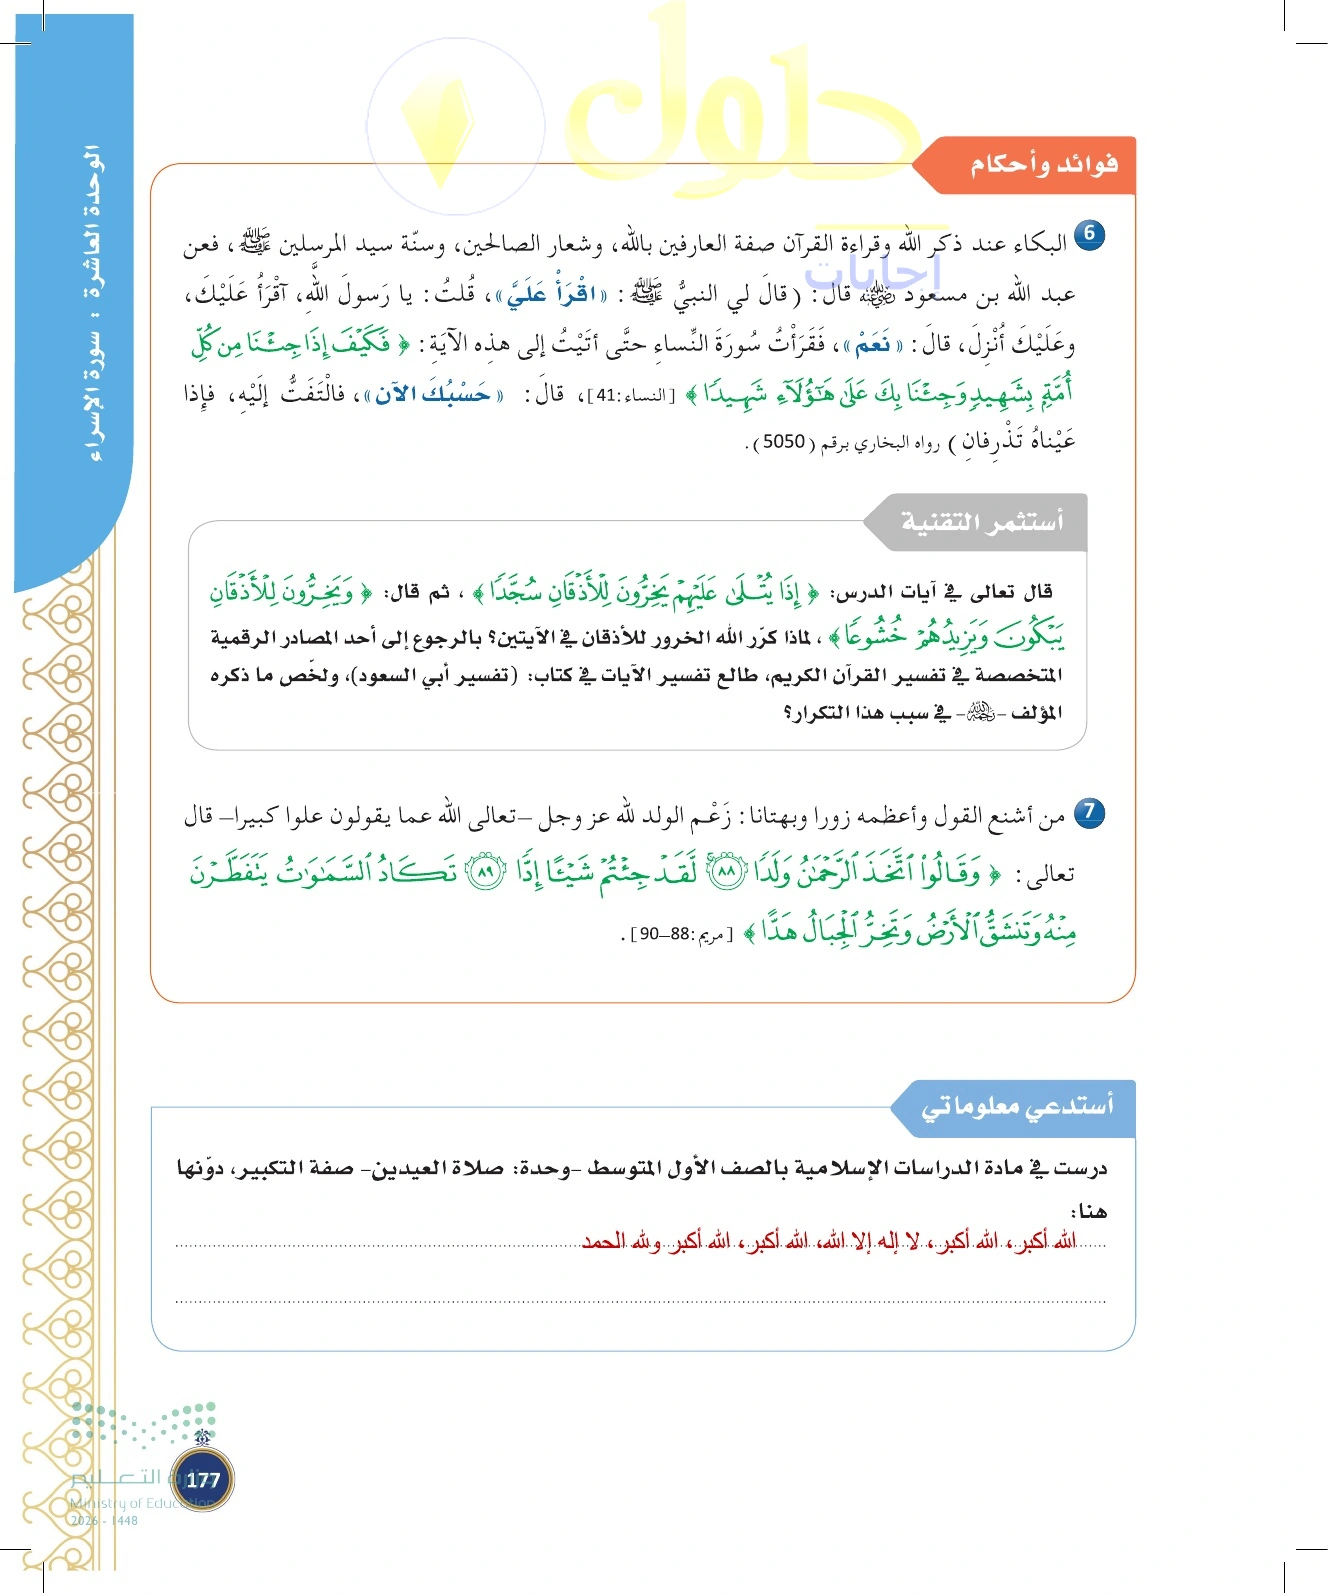 حلول
اجابات
الوحدة العاشرة : سورة الإسراء
فوائد وأحكام
6 البكاء عند ذكر الله وقراءة القرآن صفة العارفين بالله، وشعار الصالحين، وسنّة سيد المرسلين ﷺ، فعن
عبد الله بن مسعود رضي الله عنه قال: (قالَ لي النبيُّ ﷺ: «اقْرَأْ عَلَيَّ»، قُلتُ: يا رَسولَ اللَّهِ، آقْرَأُ عَلَيْكَ،
وعَلَيْكَ أُنْزِلَ، قالَ: «نَعَمْ»، فَقَرَأْتُ سُورَةَ النِّساءِ حتَّى أتَيْتُ إلى هذِه الآيَةِ: ﴿فَكَيْفَ إِذَا جِئْنَا مِن كُلِّ
أُمَّةٍ بِشَهِيدٍ وَجِئْنَا بِكَ عَلَىٰ هَٰٓؤُلَآءِ شَهِيدًا﴾ [النساء:41]، قالَ: «حَسْبُكَ الآن»، فالْتَفَتُّ إلَيْهِ، فإذا
عَيْناهُ تَذْرِفانِ) رواه البخاري برقم (5050).
أستثمر التقنية
قال تعالى في آيات الدرس: ﴿إِذَا يُتْلَىٰ عَلَيْهِمْ يَخِرُّونَ لِلْأَذْقَانِ سُجَّدًا﴾، ثم قال: ﴿وَيَخِرُّونَ لِلْأَذْقَانِ
يَبْكُونَ وَيَزِيدُهُمْ خُشُوعًا﴾، لماذا كرّر الله الخرور للأذقان في الآيتين؟ بالرجوع إلى أحد المصادر الرقمية
المتخصصة في تفسير القرآن الكريم، طالع تفسير الآيات في كتاب: (تفسير أبي السعود)، ولخّص ما ذكره
المؤلف -رحمه الله- في سبب هذا التكرار؟
7 من أشنع القول وأعظمه زورا وبهتانا: زَعْم الولد لله عز وجل –تعالى الله عما يقولون علوا كبيرا– قال
تعالى: ﴿وَقَالُوا۟ ٱتَّخَذَ ٱلرَّحْمَٰنُ وَلَدًا ٨٨ لَّقَدْ جِئْتُمْ شَيْـًٔا إِدًّا ٨٩ تَكَادُ ٱلسَّمَٰوَٰتُ يَتَفَطَّرْنَ
مِنْهُ وَتَنشَقُّ ٱلْأَرْضُ وَتَخِرُّ ٱلْجِبَالُ هَدًّا﴾ [مريم:88–90].
أستدعي معلوماتي
درست في مادة الدراسات الإسلامية بالصف الأول المتوسط -وحدة: صلاة العيدين- صفة التكبير، دوّنها
هنا:
الله أكبر، الله أكبر، لا إله إلا الله، الله أكبر، الله أكبر ولله الحمد
وزارة التعليم
Ministry of Education
2026 - 1448
177